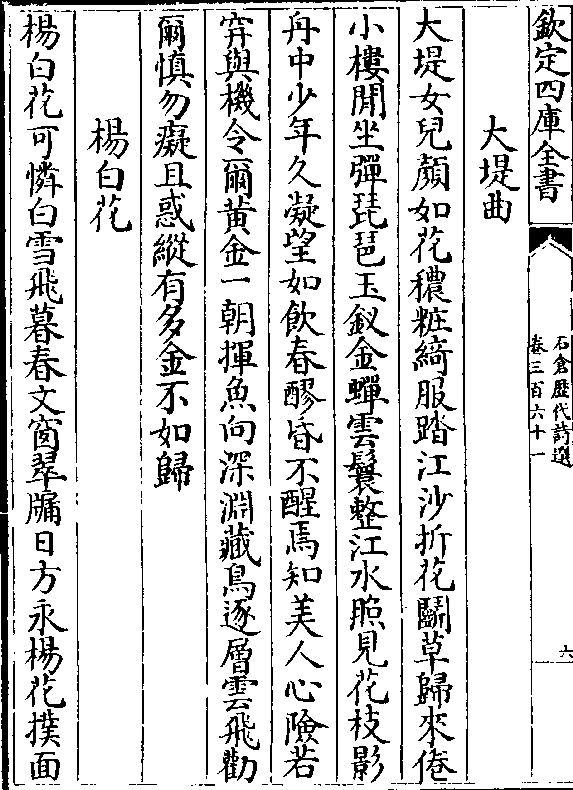 欽定四庫全書
石倉歷代詩選
卷三百六十一
六
大堤曲
大堤女兒顏如花穠粧綺服踏江沙折花鬭草歸來倦
小樓閒坐彈琵琶玉釵金蟬雲鬟整江水照見花枝影
舟中少年久凝望如飲春醪昏不醒焉知美人心險若
穽與機令爾黃金一朝揮魚向深淵藏鳥逐層雲飛勸
爾慎勿癡且惑縱有多金不如歸
楊白花
楊白花可憐白雪飛暮春文窗翠牖日方永楊花撲面